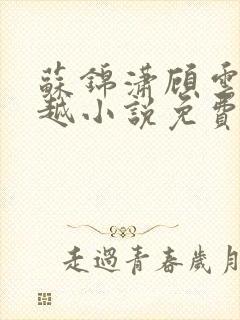 蘇錦瀟顧雲
越小說免費
走過青春歲月